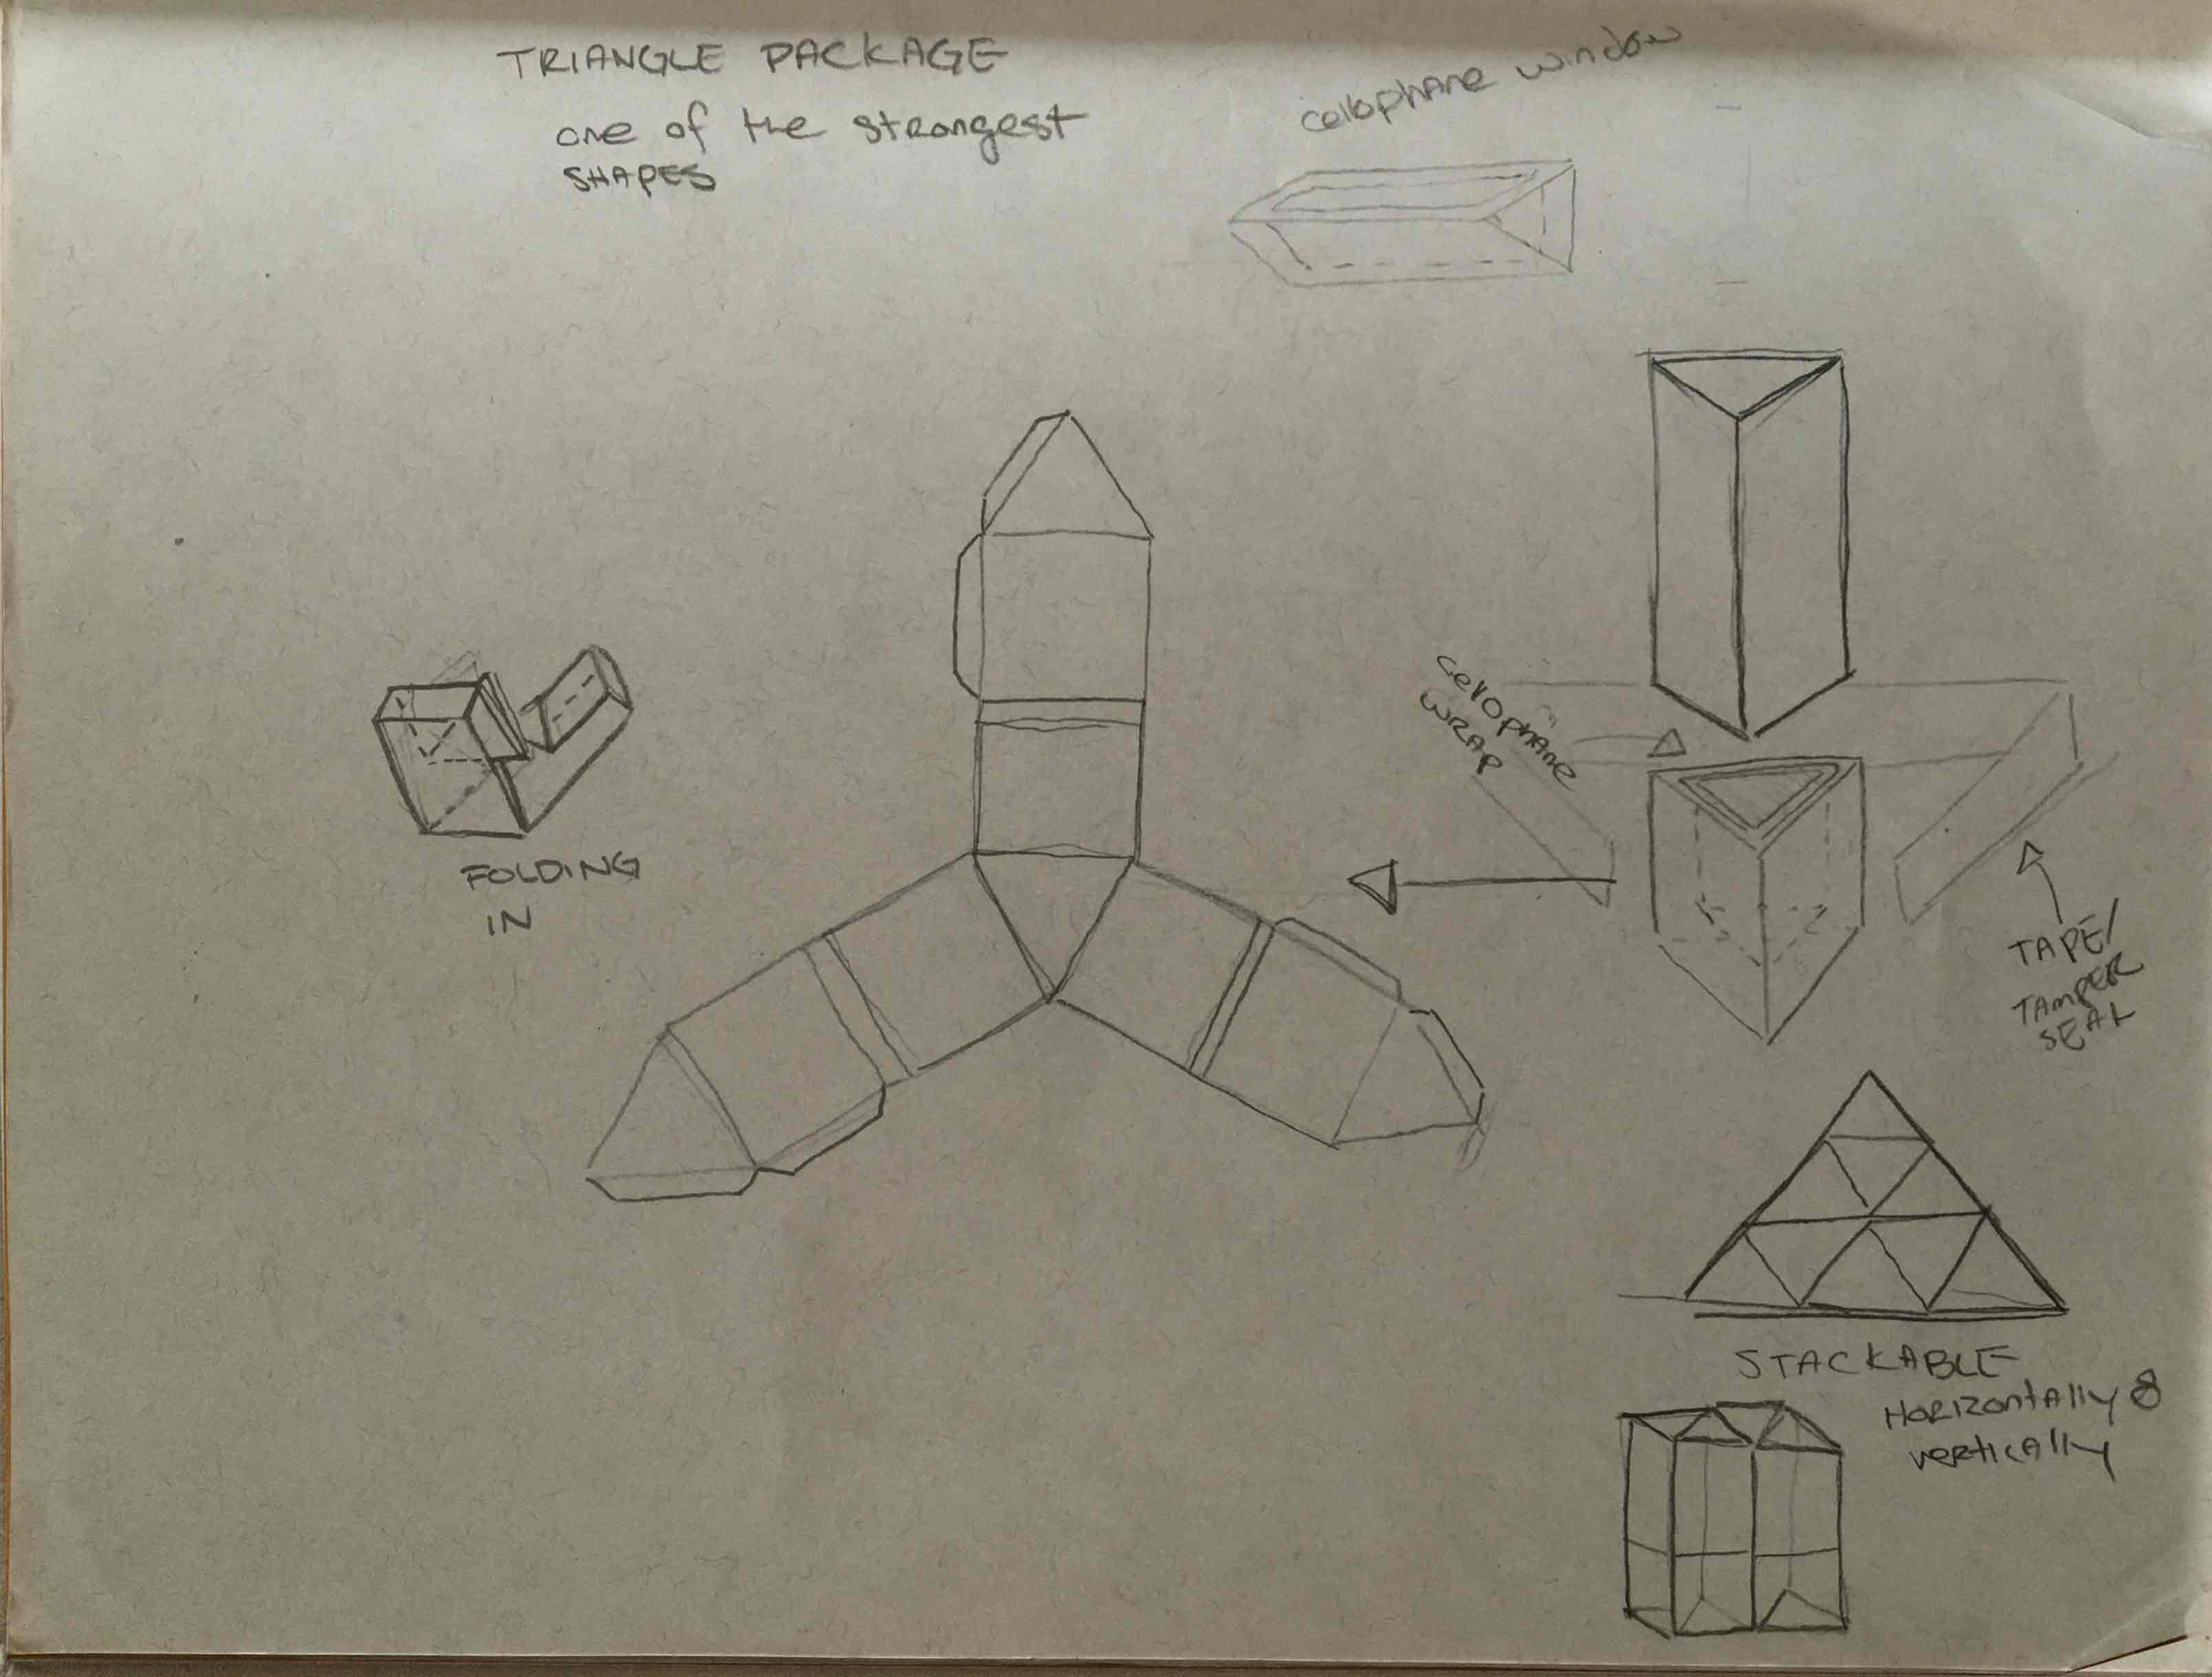 TRIANGLE PACKAGE
one of the strongest
SHAPES
cellophane window
cellophane
WRAP
FOLDING
IN
TAPE/
TAMPER
SEAL
STACKABLE
HORIZONTAlly &
VERTICALLY